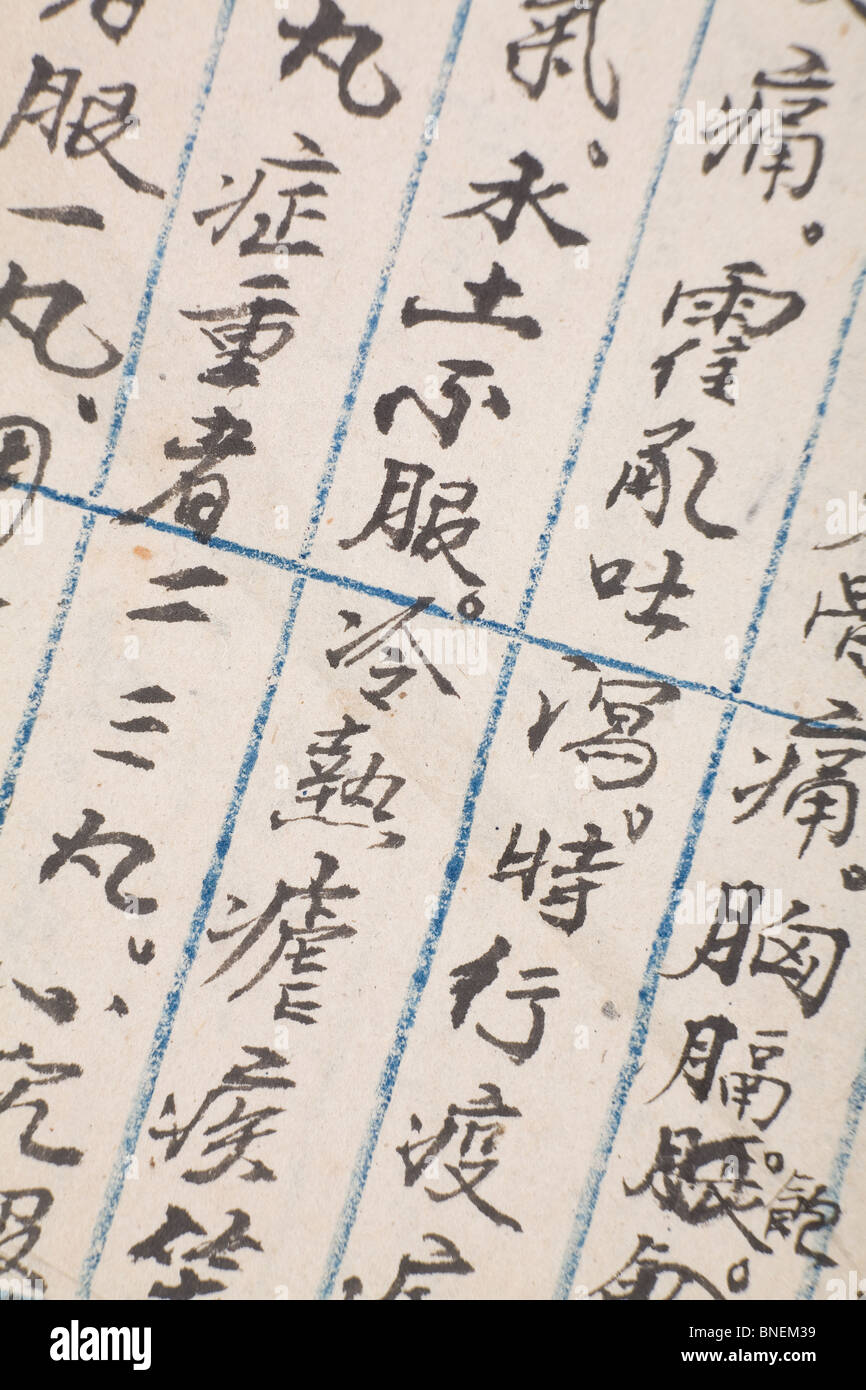 骨痛。胸膈脹。飽
痛。霍乱吐瀉。時行疫
氣。水土不服。冷熱瘧疾
丸症重者二三丸。
服一丸、
alamy
Image ID: BNEM39
www.alamy.com